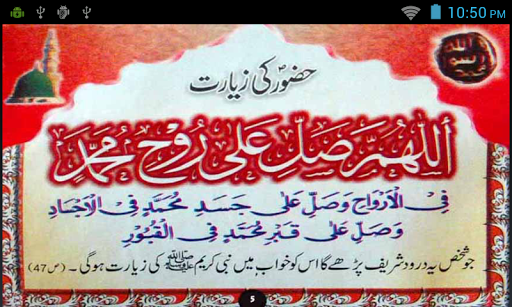 10:50 PM
حضورؐ کی زیارت
اَللّٰهُمَّ صَلِّ عَلٰی رُوْحِ مُحَمَّدٍ
فِی الْاَرْوَاحِ وَصَلِّ عَلٰی جَسَدِ مُحَمَّدٍ فِی الْاَجْسَادِ
وَصَلِّ عَلٰی قَبْرِ مُحَمَّدٍ فِی الْقُبُوْرِ
جو شخص یہ درود شریف پڑھے گا اس کو خواب میں نبی کریم ﷺ کی زیارت ہوگی ۔ (ص47)
5